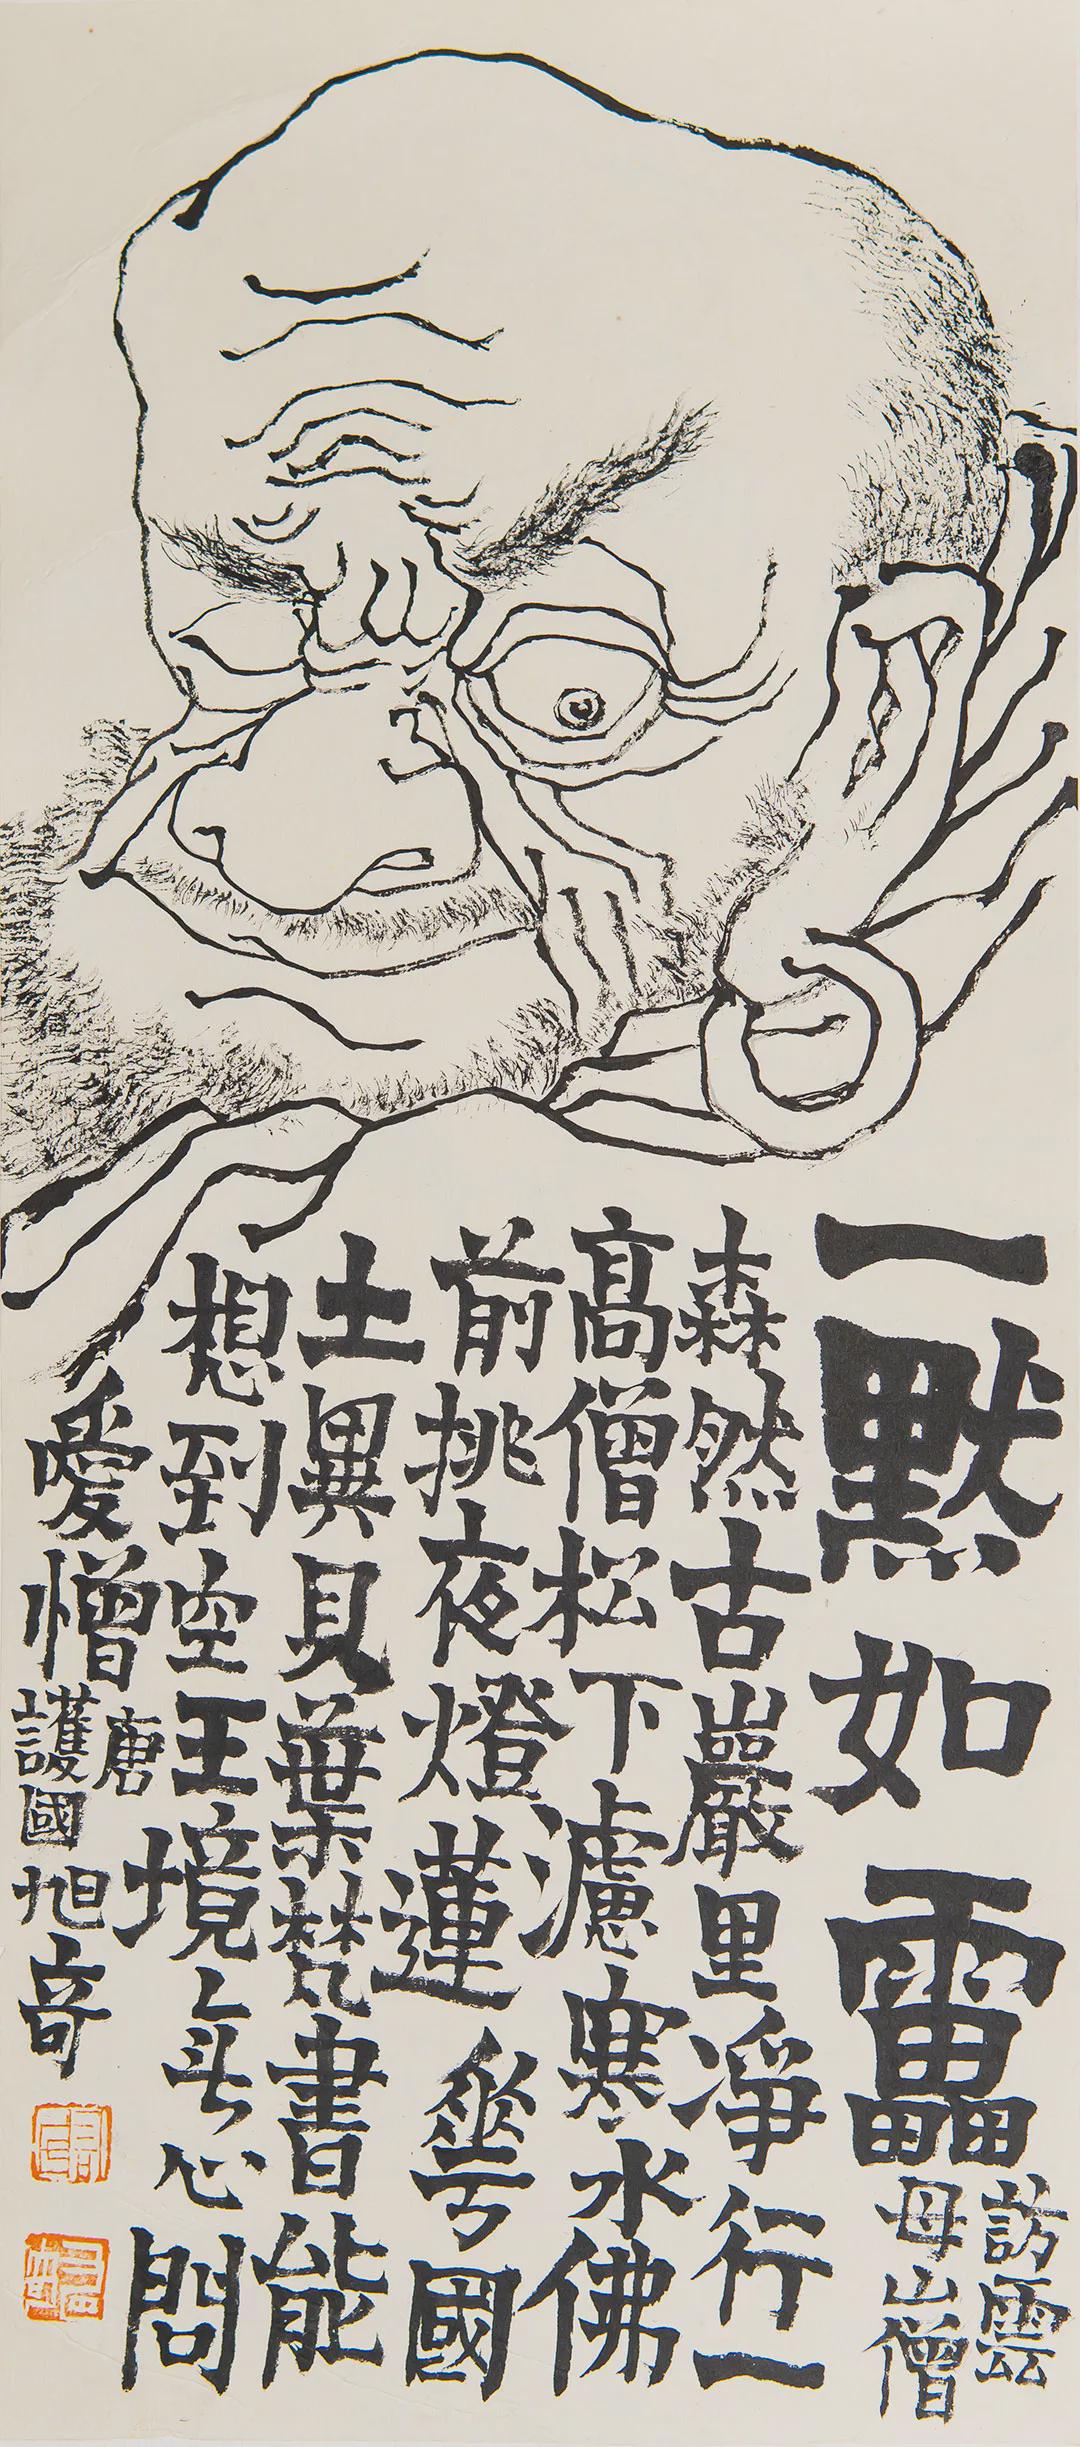 一默如靁
訪雲
母山僧
森然古巖里淨行一
髙僧松下濾寒水佛
前挑夜燈蓮華國
土異貝葉梵書能
想到空王境無心問
愛憎
唐
護國旭奇